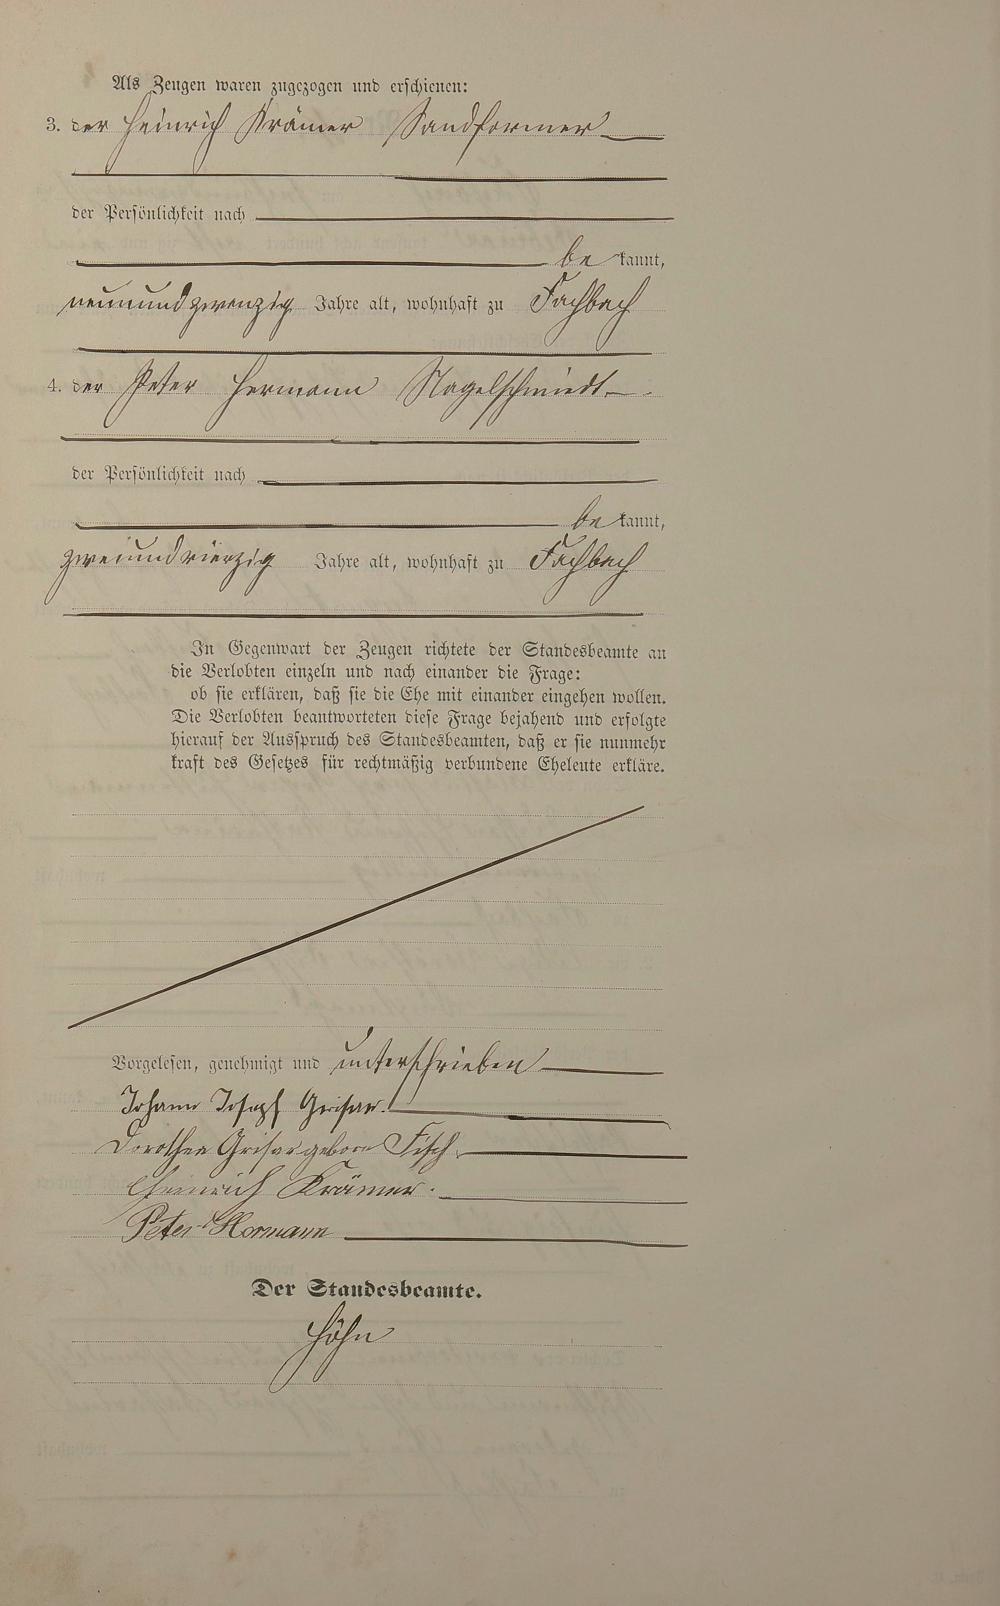 Als Zeugen waren zugezogen und erschienen:
3. der Heinrich Krämer Sandformer
der Persönlichkeit nach
be kannt,
neunundzwanzig Jahre alt, wohnhaft zu Fachbach
4. der Peter Hermann Nagelschmiedt
der Persönlichkeit nach
be kannt,
zweiundvierzig Jahre alt, wohnhaft zu Fachbach
In Gegenwart der Zeugen richtete der Standesbeamte an
die Verlobten einzeln und nach einander die Frage:
ob sie erklären, daß sie die Ehe mit einander eingehen wollen.
Die Verlobten beantworteten diese Frage bejahend und erfolgte
hierauf der Ausspruch des Standesbeamten, daß er sie nunmehr
kraft des Gesetzes für rechtmäßig verbundene Eheleute erkläre.
Vorgelesen, genehmigt und unterschrieben
Johann Joseph Grisar.
Dorothea Grisar geborn Fisch.
Heinrich Krämer.
Peter Hermann
Der Standesbeamte.
Höhn